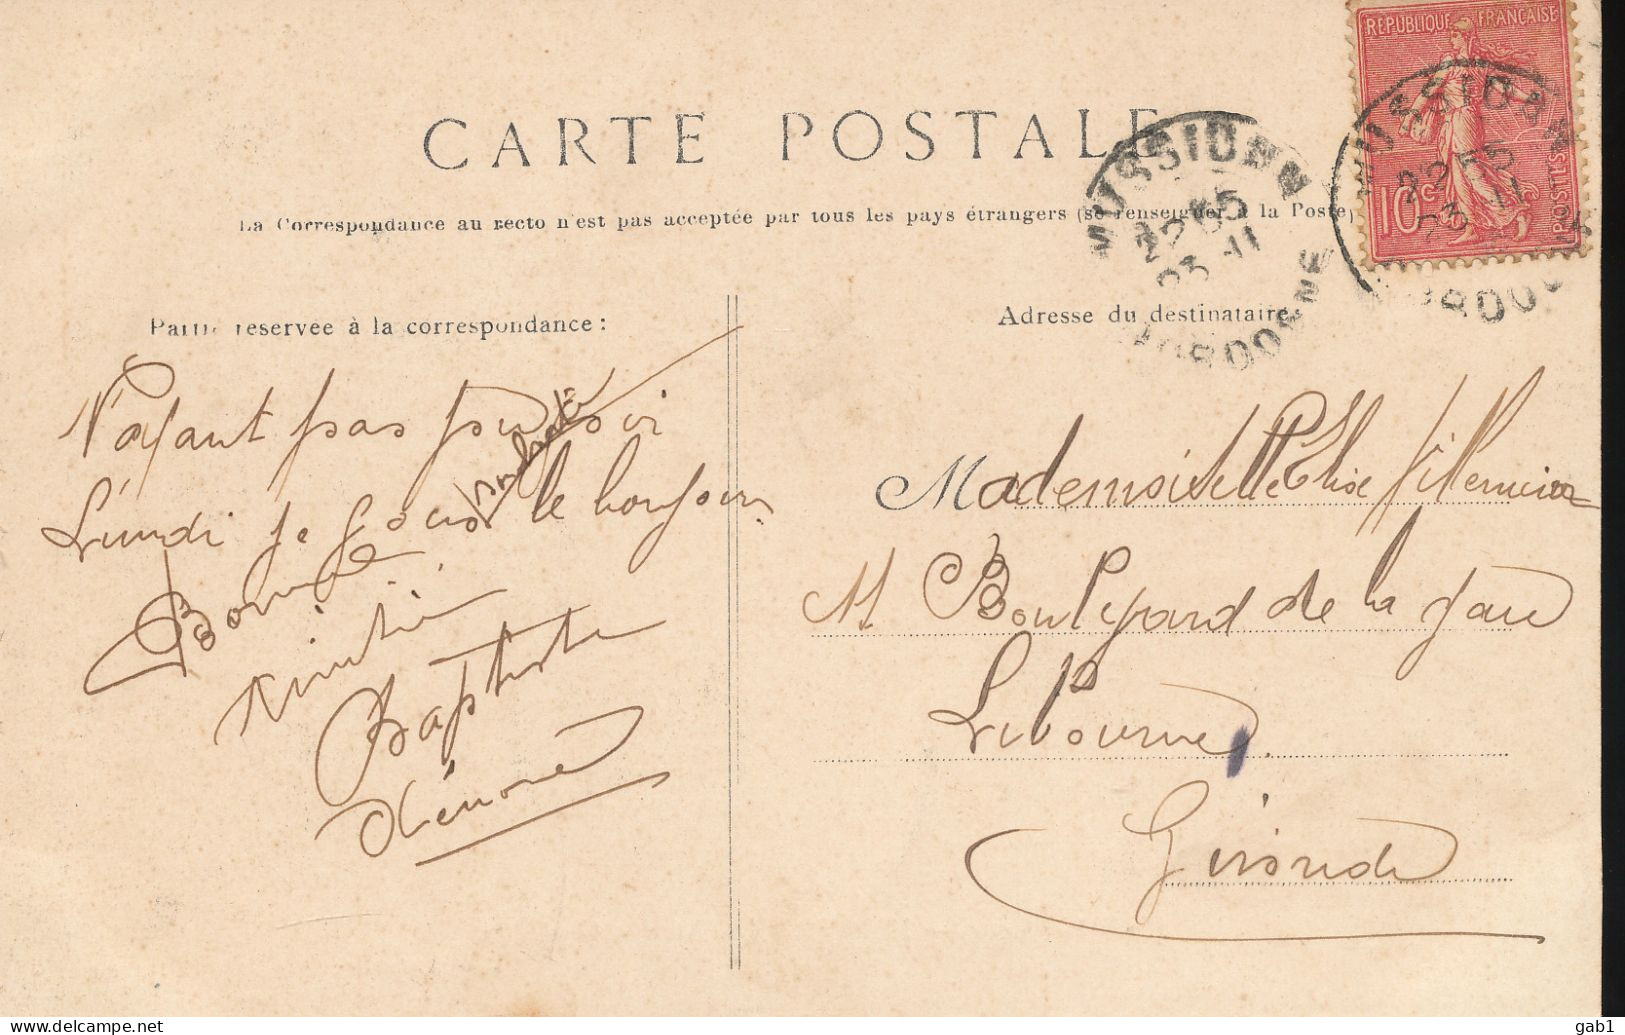 RÉPUBLIQUE FRANÇAISE
10c
POSTES
CARTE POSTALE
MUSSIDAN
DORDOGNE
MUSSIDAN
DORDOGNE
La Correspondance au recto n'est pas acceptée par tous les pays étrangers (se renseigner à la Poste)
Partie réservée à la correspondance :
Adresse du destinataire
N'ayant pas pou voir
Lundi je vous le bonjour.
Bonne
Baptiste
Mademoiselle Elise Villemeur
11 Boulevard de la gare
Libourne
Gironde
gab1
www.delcampe.net